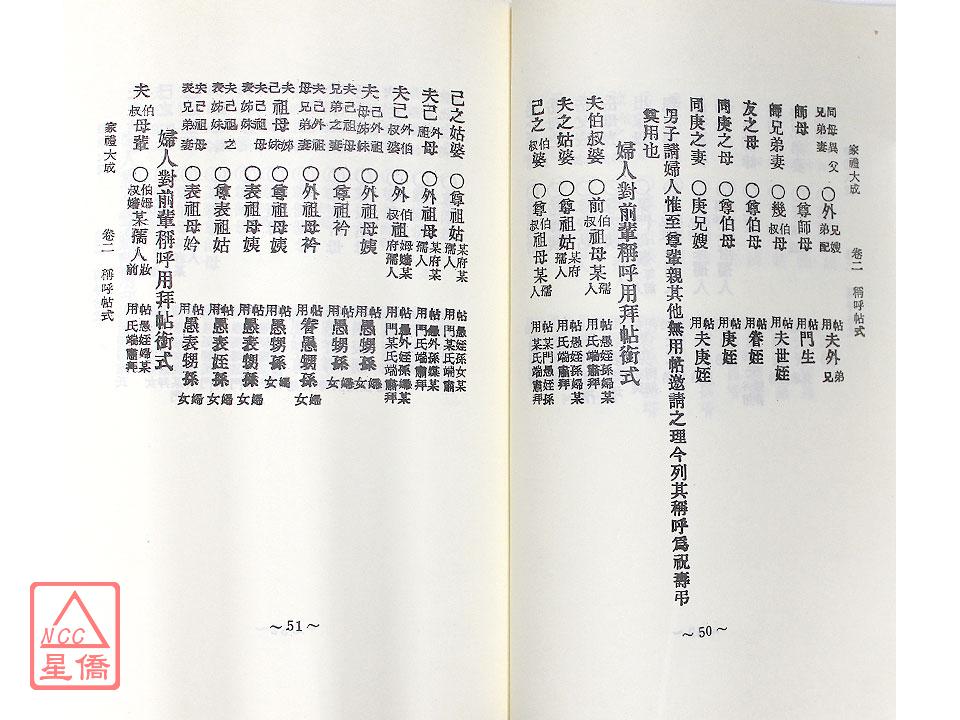 家禮大成 卷二 稱呼帖式
同母異父兄弟妻 ○外兄嫂弟配 帖用夫外兄弟
師母 ○尊師母 帖用門生
師兄弟妻 ○幾伯叔母 帖用夫世姪
友之母 ○尊伯母 帖用眷姪
同庚之母 ○尊伯母 帖用庚姪
同庚之妻 ○庚兄嫂 帖用夫庚姪
男子請婦人惟至尊輩親其他無用帖邀請之理今列其稱呼為祝壽弔
奠用也
婦人對前輩稱呼用拜帖銜式
夫伯叔婆 ○前伯叔祖母某孺人 帖用愚姪孫婦某門某氏端肅拜
夫之姑婆 ○尊祖姑某府某孺人 帖用愚姪孫婦某門某氏端肅拜
己之伯叔婆 ○尊伯叔祖母某孺人 帖用愚姪孫某門某氏端肅拜
~50~
己之姑婆 ○尊祖姑某府某孺人 帖用愚姪孫女某門某氏端肅拜
夫己外祖母 ○外祖母某府某孺人 帖用愚外孫婦某門某氏端肅拜
夫己外伯叔婆 ○外伯叔祖姆嬸某府孺人 帖用愚外姪孫婦某門某氏端肅拜
夫己外祖母姊妹 ○外祖母姨 帖用愚甥孫婦女
夫己祖母兄弟妻 ○尊祖衿 帖用愚甥孫婦女
夫己外祖母兄弟妻 ○外祖母衿 帖用眷愚甥孫婦女
夫己祖母姊妹 ○尊祖母姨 帖用愚甥孫婦女
夫己祖母表姊妹 ○表祖母姨 帖用愚表甥孫婦女
夫己祖之表姊妹 ○尊表祖姑 帖用愚表姪孫婦女
夫己祖母表兄弟妻 ○表祖母妗 帖用愚表甥孫婦女
婦人對前輩稱呼用拜帖銜式
夫伯叔母輩 ○伯姆叔嬸某孺人妝前 帖用愚姪婦某氏端肅拜
家禮大成 卷二 稱呼帖式
~51~
NCC
星僑